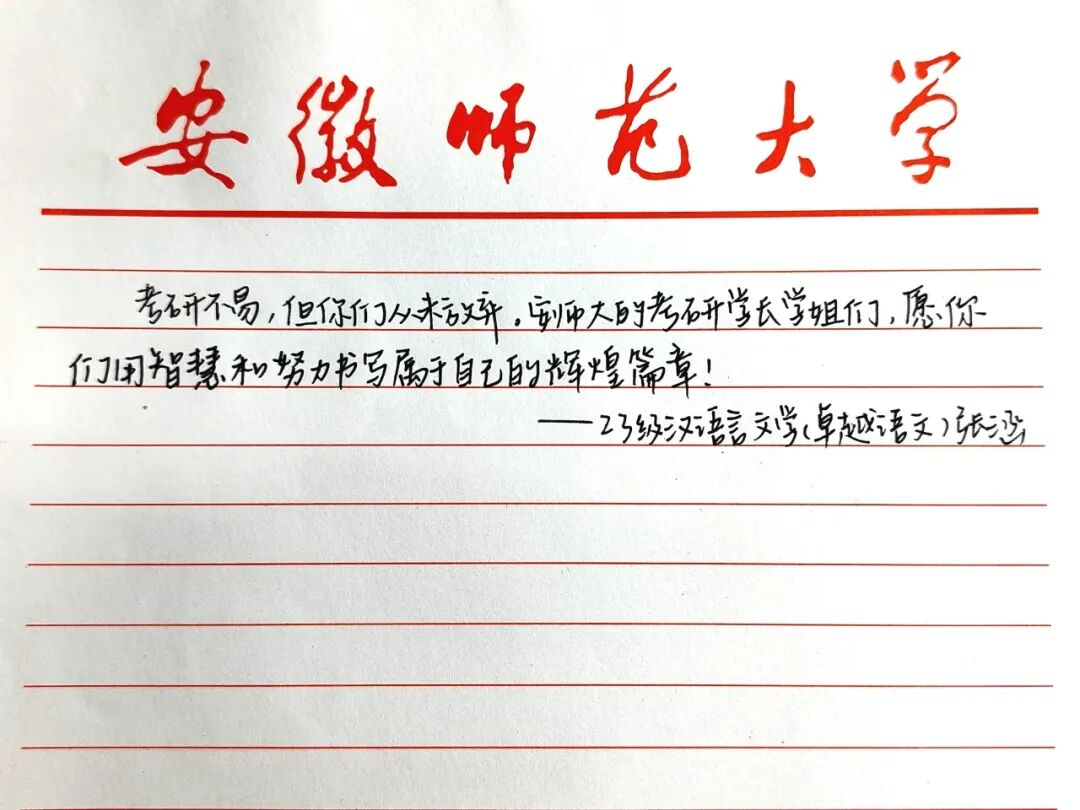 安徽师范大学
考研不易，但你们从未放弃。安师大的考研学长学姐们，愿你
们用智慧和努力书写属于自己的辉煌篇章！
——23级汉语言文学（卓越语文）张涵